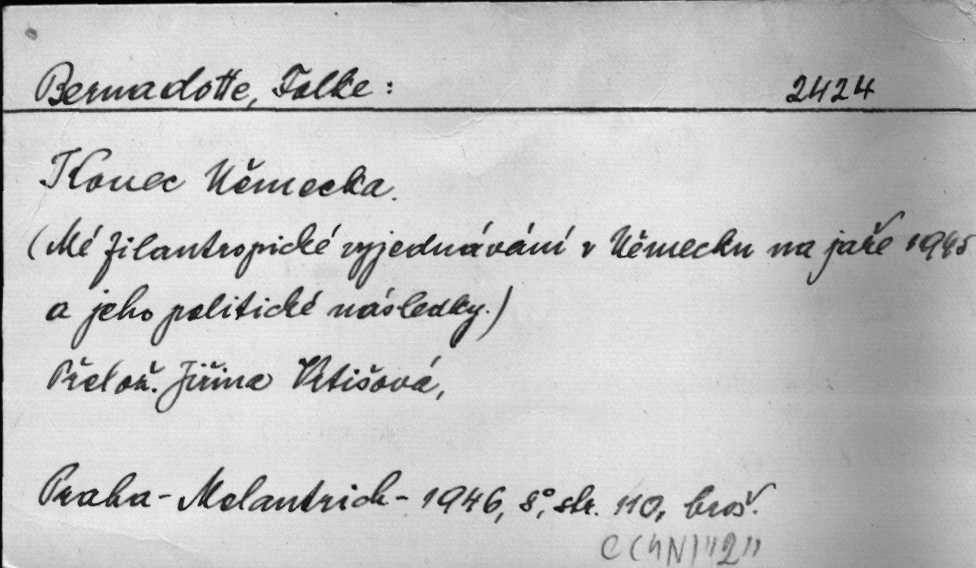 Bernadotte, Folke: 2424
Konec Německa.
(Mé filantropické vyjednávání v Německu na jaře 1945
a jeho politické následky.)
Přelož. Jiřina Vrtišová,
Praha - Melantrich - 1946, 8°, str. 110, brož.
C(4N)"2"